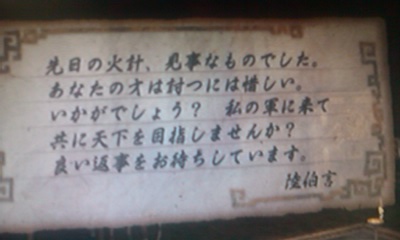 先日の火計、見事なものでした。
あなたの才は討つには惜しい。
いかがでしょう？　私の軍に来て
共に天下を目指しませんか？
良い返事をお待ちしています。
陸伯言